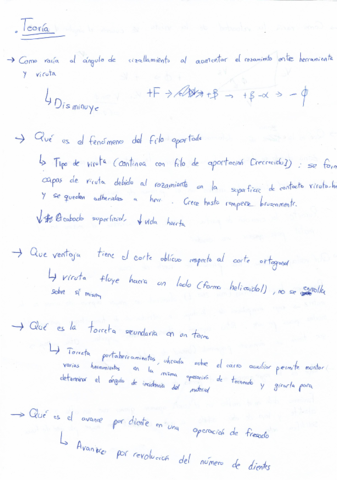 . Teoría
→ Como varia al ángulo de cizallamiento al aumentar el rozamiento entre herramienta
y viruta
↳ Disminuye
+F → +β → +β-α → -φ
→ Qué es el fenómeno del filo aportado
↳ Tipo de viruta (continua con filo de aportación ): se
capas de viruta debido al rozamiento en la superficie de contacto viruta-
y se quedan adheridas a herr. Crece hasta romperse bruscamente.
↓ Acabado superficial, ↓ vida herrta
→ Que ventaja tiene el corte oblicuo respecto al corte ortogonal
↳ viruta fluye hacia un lado (forma helicoidal), no se
sobre si misma
→ Qué es la torreta secundaria en un torno
↳ Torreta portaherramientas, ubicada sobre el carro auxiliar permite montar
varias herramientas en la misma operación de torneado y girarla para
determinar el ángulo de incidencia del material
→ Qué es el avance por diente en una operación de fresado
↳ Avance por revolución del número de dientes